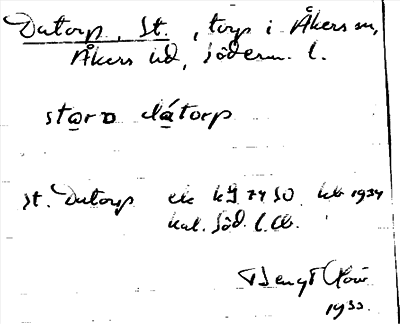 Datorp, St., torp i Åkers sn,
Åkers hd, Söderm. l.
stora dátorp
St. Datorp ek kJ 7450 kb 1934
kal. Söd. l. Cb.
Bengt
1933.